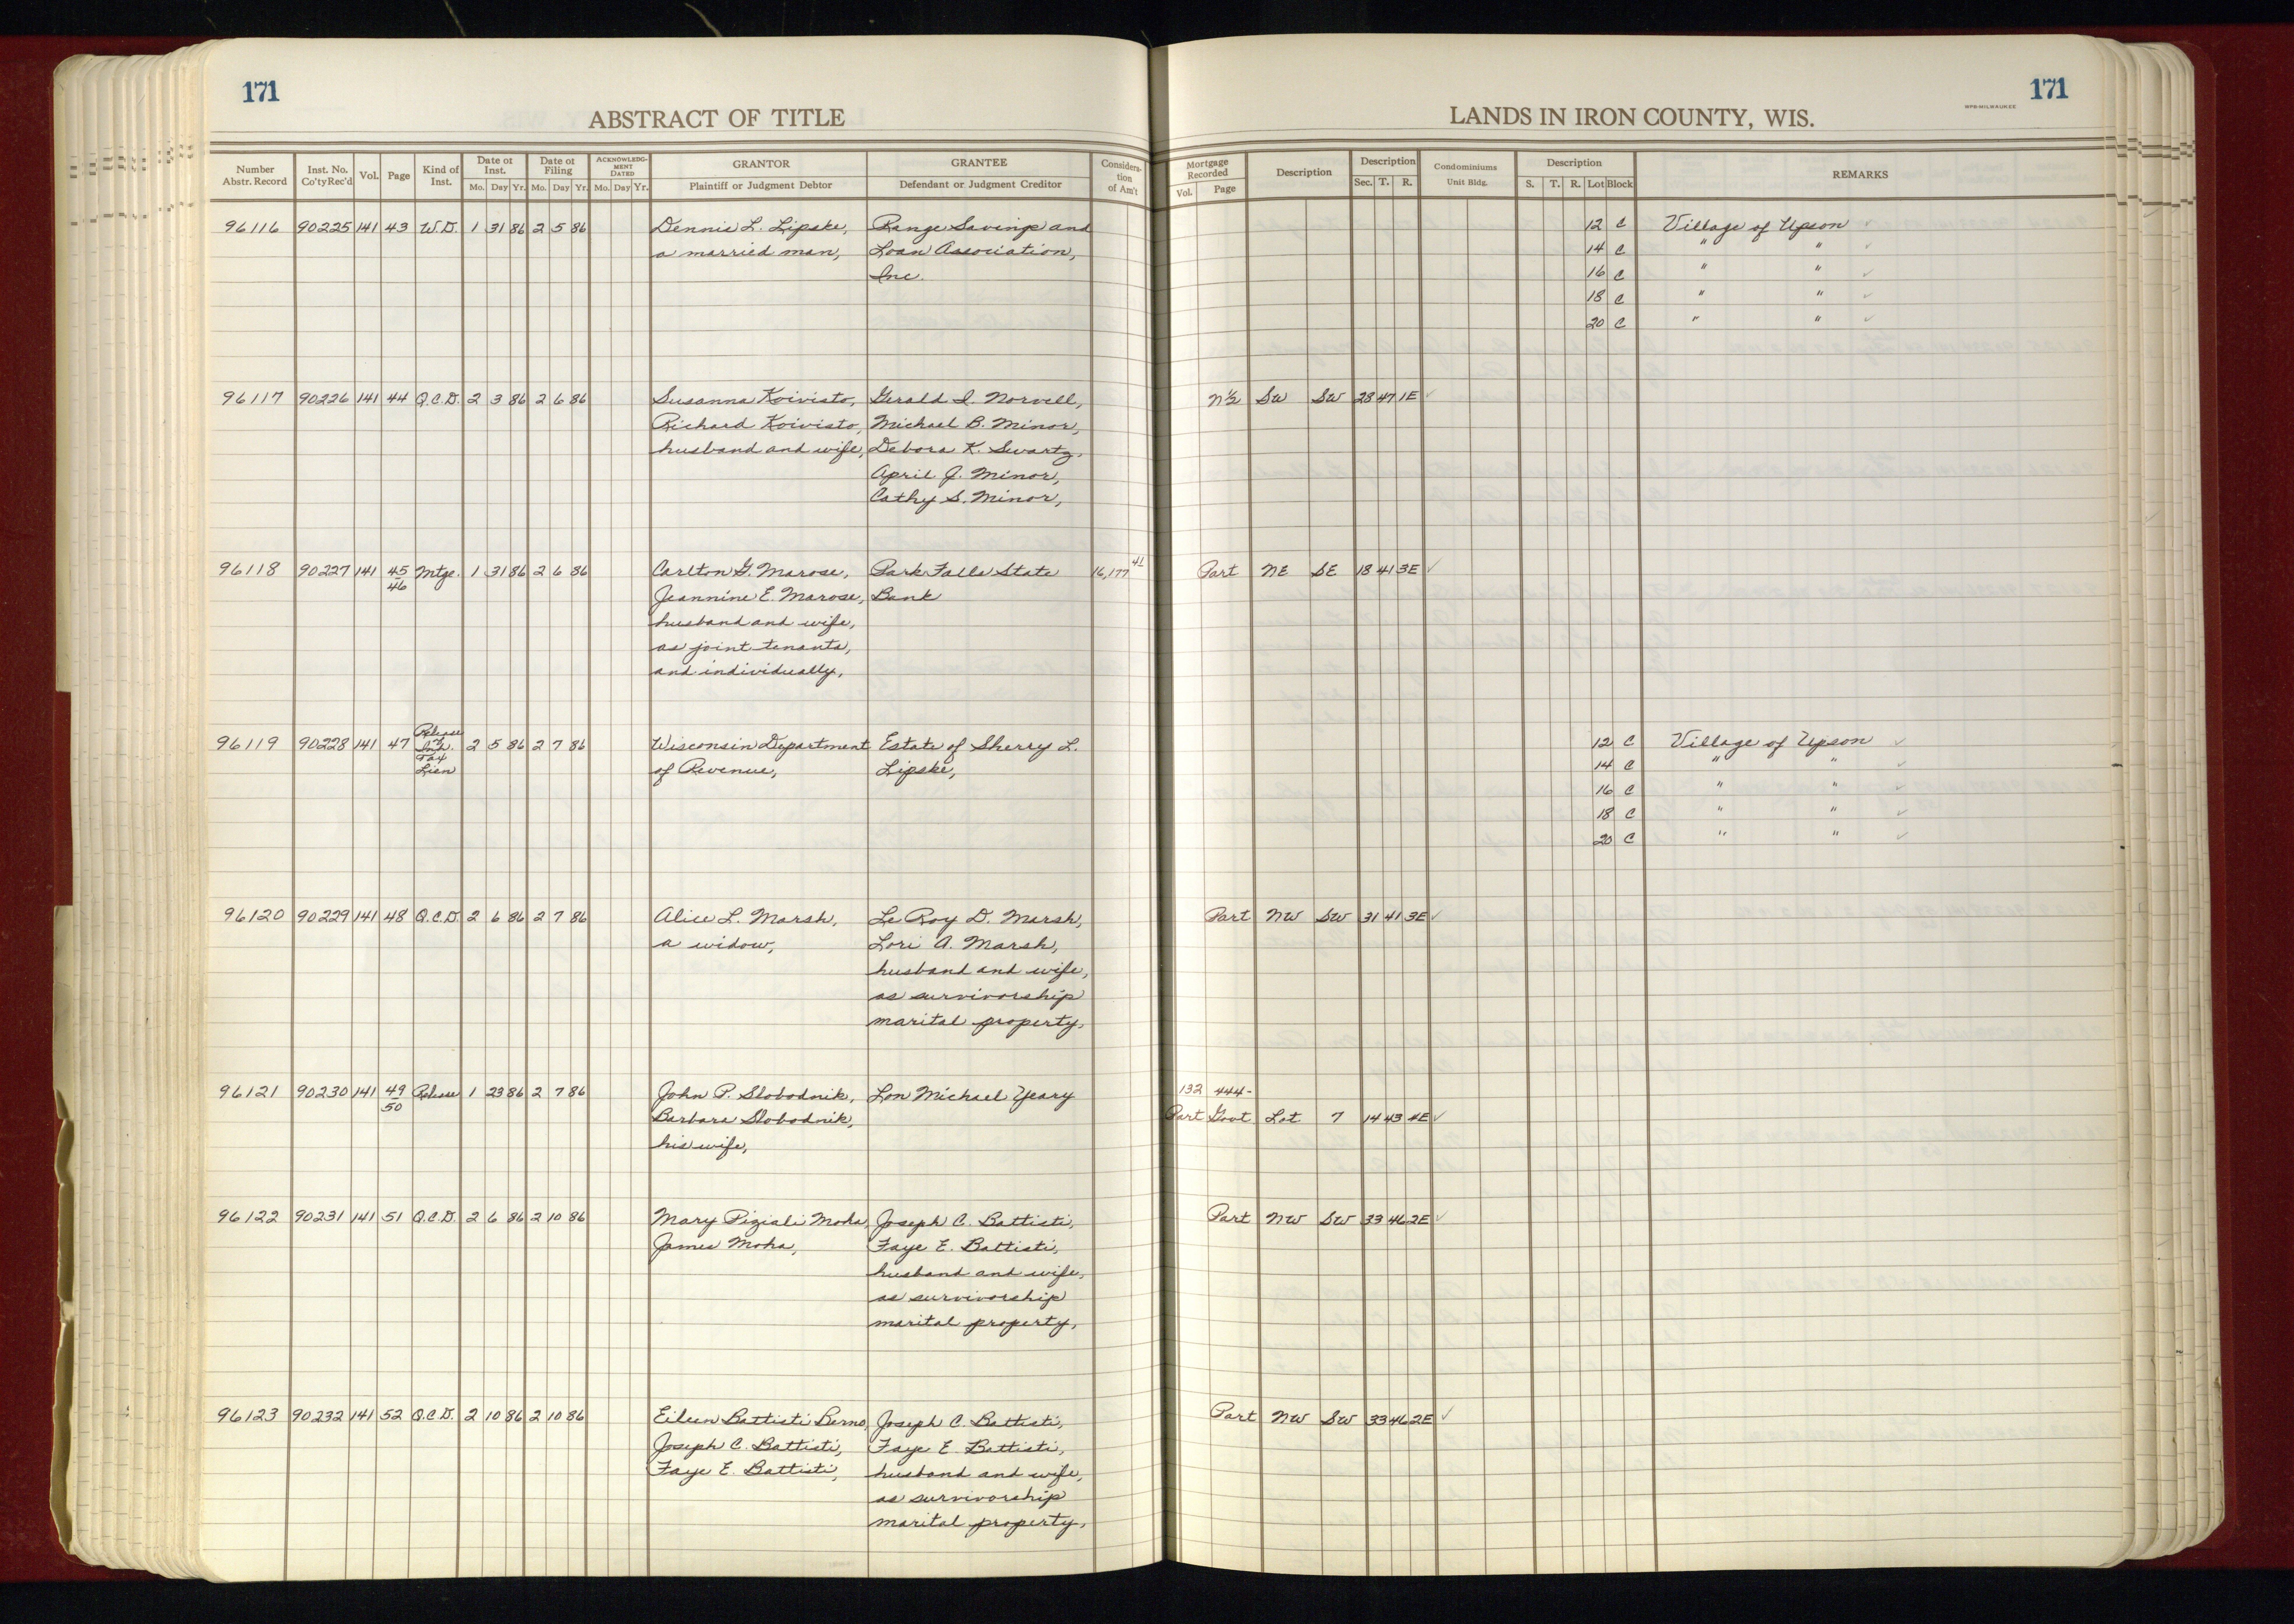 171
ABSTRACT OF TITLE
Number Abstr. Record Inst. No. Co'ty Rec'd Vol. Page Kind of Inst. Date of Inst. Mo. Day Yr. Date of Filing Mo. Day Yr. ACKNOWLEDGMENT DATED Mo. Day Yr. GRANTOR Plaintiff or Judgment Debtor GRANTEE Defendant or Judgment Creditor Consideration of Am't
171
WPB-MILWAUKEE
LANDS IN IRON COUNTY, WIS.
Mortgage Recorded Vol. Page Description Description Sec. T. R. Condominiums Unit Bldg. Description S. T. R. Lot Block REMARKS
96116 90225 141 43 W.D. 1 31 86 2 5 86 Dennis L. Lipske, Range Savings and 12 C Village of Upson
a married man, Loan Association, 14 C " "
Inc. 16 C " "
18 C " "
20 C " "
96117 90226 141 44 Q.C.D. 2 3 86 2 6 86 Susanna Koivisto, Gerald I. Norvell, N½ SW SW 28 47 1E
Richard Koivisto, Michael B. Minor,
husband and wife, Debora K. Swartz,
April J. Minor,
Cathy S. Minor,
96118 90227 141 45 46 Mtge. 1 31 86 2 6 86 Carlton G. Marose, Park Falls State 16,177 41 Part NE SE 18 41 3E
Jeannine E. Marose, Bank
husband and wife,
as joint tenants,
and individually,
96119 90228 141 47 Release of Inh. Tax Lien 2 5 86 2 7 86 Wisconsin Department Estate of Sherry L. 12 C Village of Upson
of Revenue, Lipske, 14 C " "
16 C " "
18 C " "
20 C " "
96120 90229 141 48 Q.C.D. 2 6 86 2 7 86 Alice L. Marsh, Le Roy D. Marsh, Part NW SW 31 41 3E
a widow, Lori A. Marsh,
husband and wife,
as survivorship
marital property,
96121 90230 141 49 50 Release 1 23 86 2 7 86 John P. Slobodnik, Lon Michael Yeary 132 444-
Barbara Slobodnik, Part Govt Lot 7 14 43 4E
his wife,
96122 90231 141 51 Q.C.D. 2 6 86 2 10 86 Mary Piziali Moha, Joseph C. Battisti, Part NW SW 33 46 2E
James Moha, Faye E. Battisti,
husband and wife,
as survivorship
marital property,
96123 90232 141 52 Q.C.D. 2 10 86 2 10 86 Eileen Battisti Berno, Joseph C. Battisti, Part NW SW 33 46 2E
Joseph C. Battisti, Faye E. Battisti,
Faye E. Battisti, husband and wife,
as survivorship
marital property,